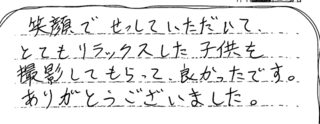 笑顔でせっしていただいて、
とてもリラックスした子供を
撮影してもらって、良かったです。
ありがとうございました。